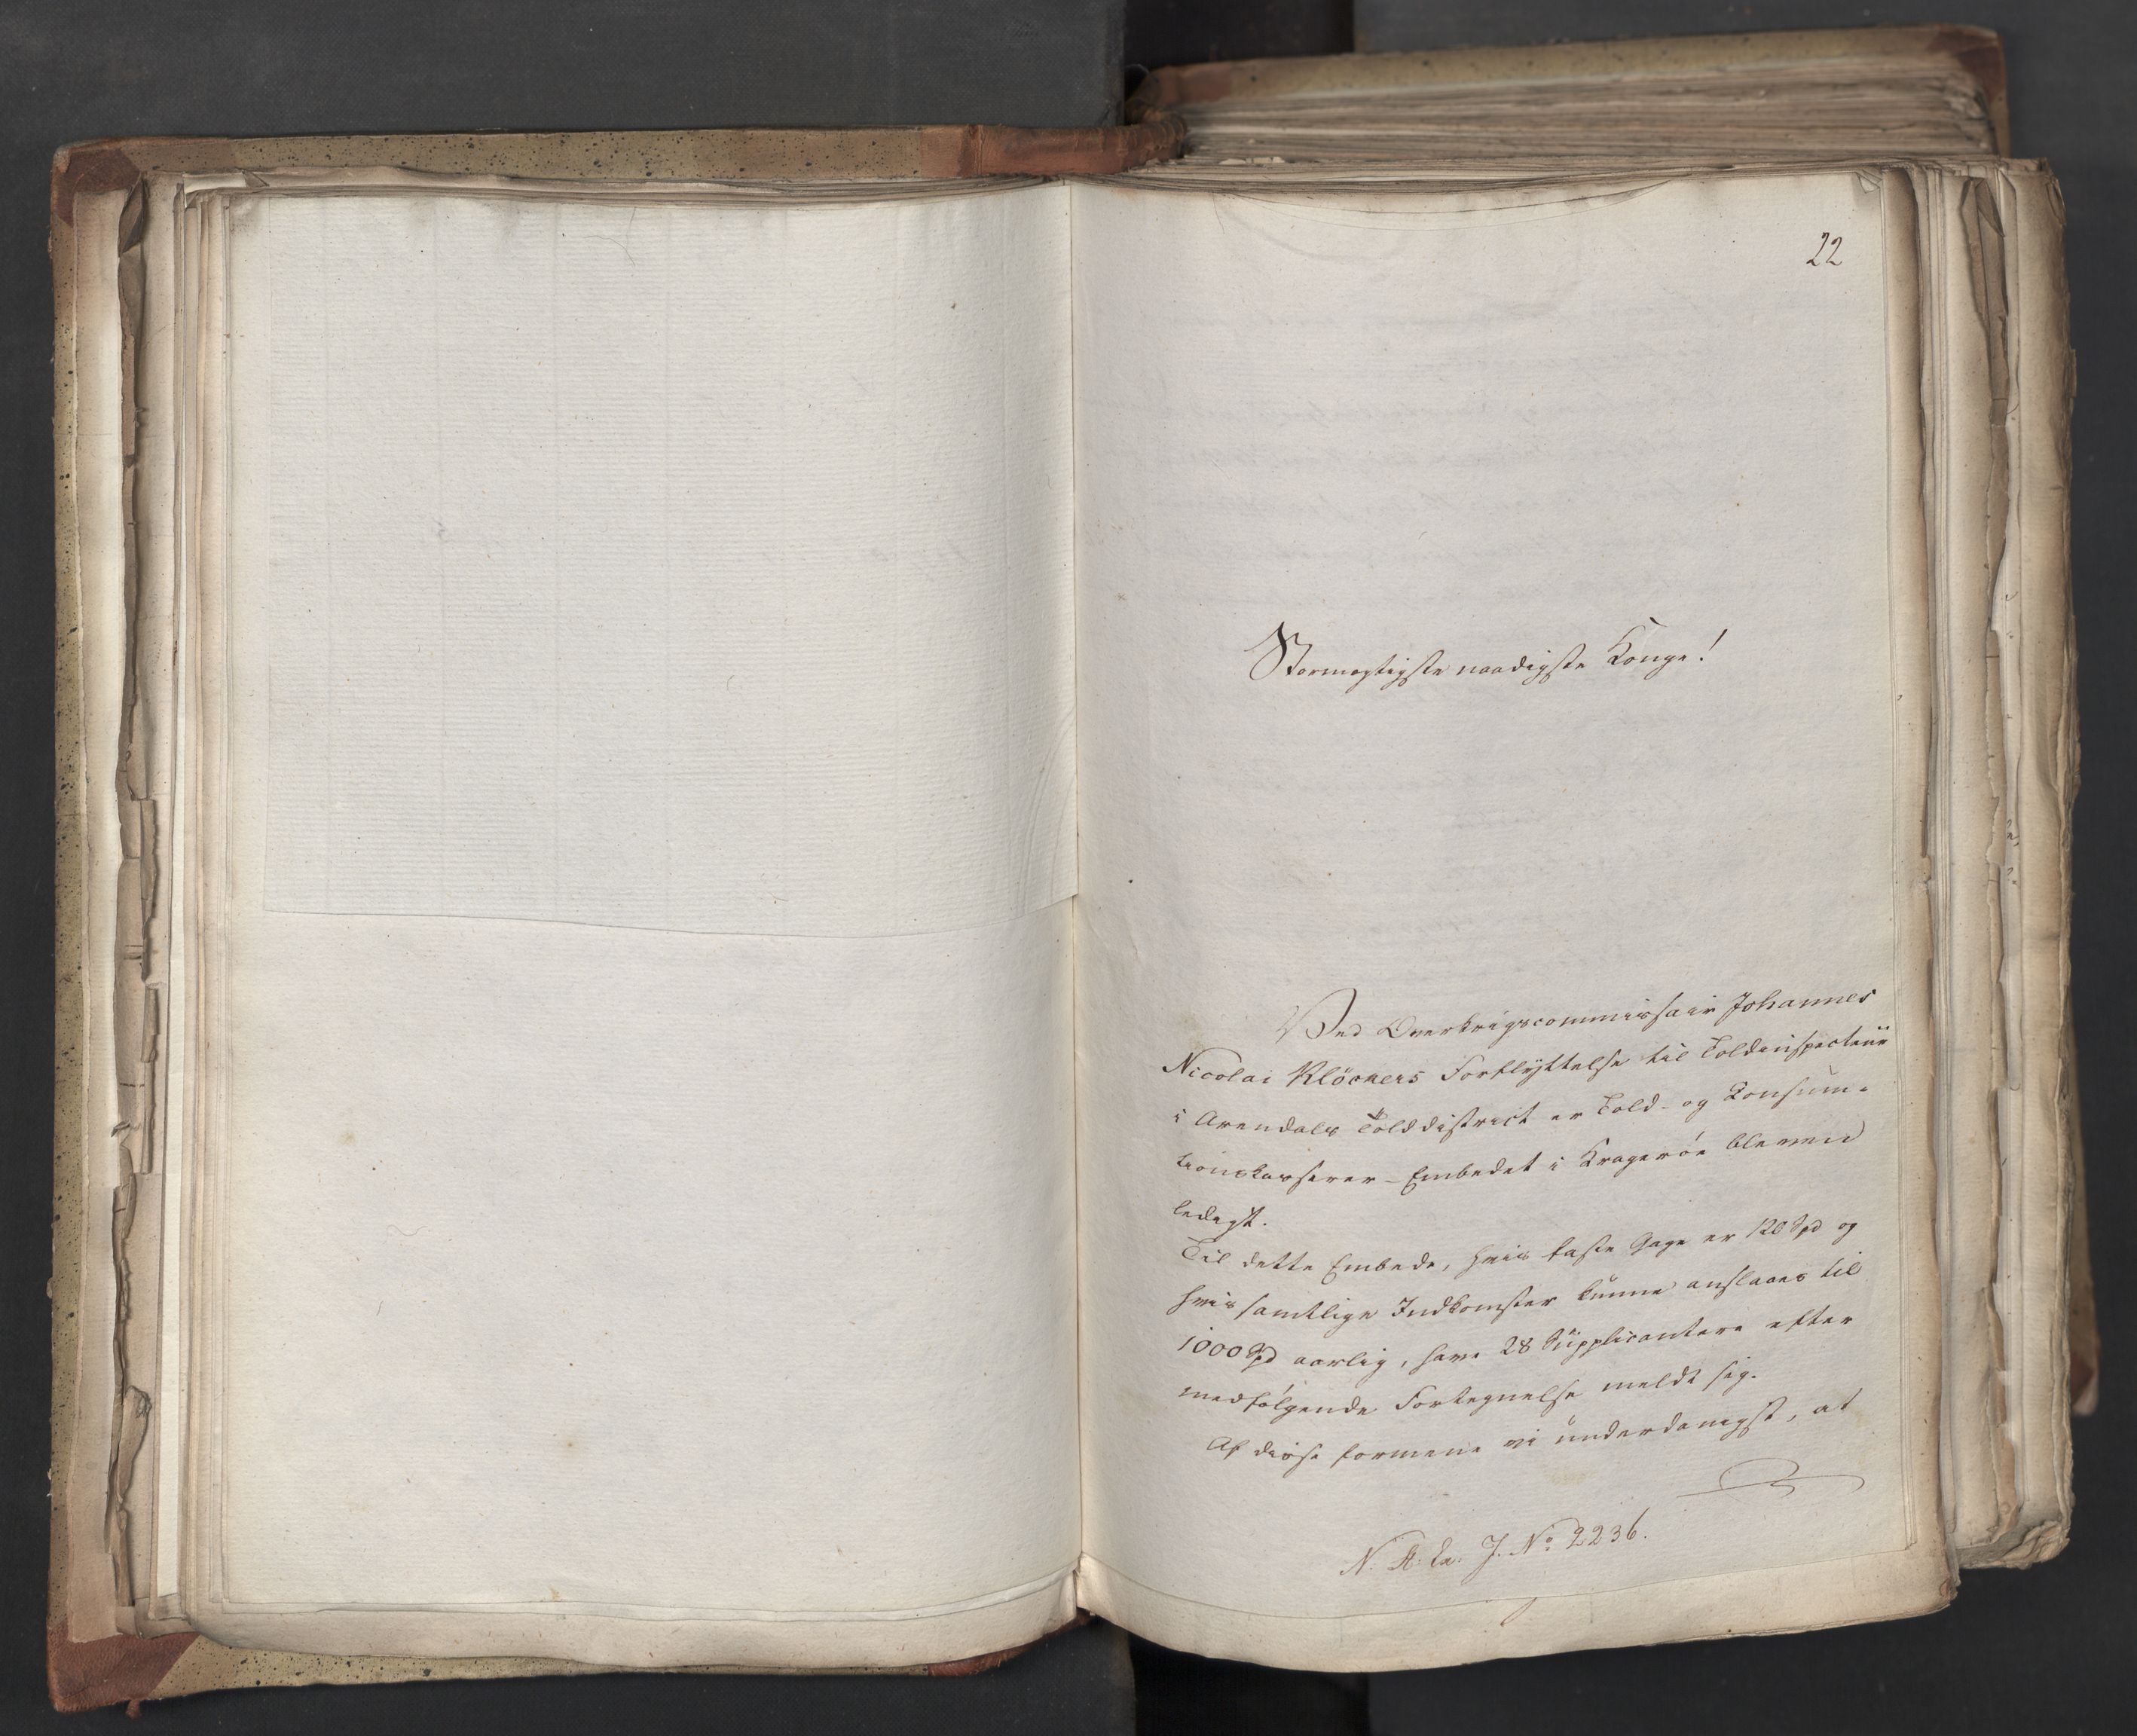 22
Stormægtigste naadigste Konge!
Ved Overkrigscommissair Johannes
Nicolai Klöckers Forflyttelse til Toldinspecteur
i Arendals Tolddistrict er Told- og Consum-
tionskasserer-Embedet i Kragerøe bleven
ledigt.
Til dette Embede, hvis faste Gage er 120 Spd og
hvis samtlige Indkomster kunne anslaaes til
1000 Spd aarlig, have 28 Supplicantere efter
medfølgende Fortegnelse meldt sig.
Af disse formene vi underdanigst, at
J. No 2236.